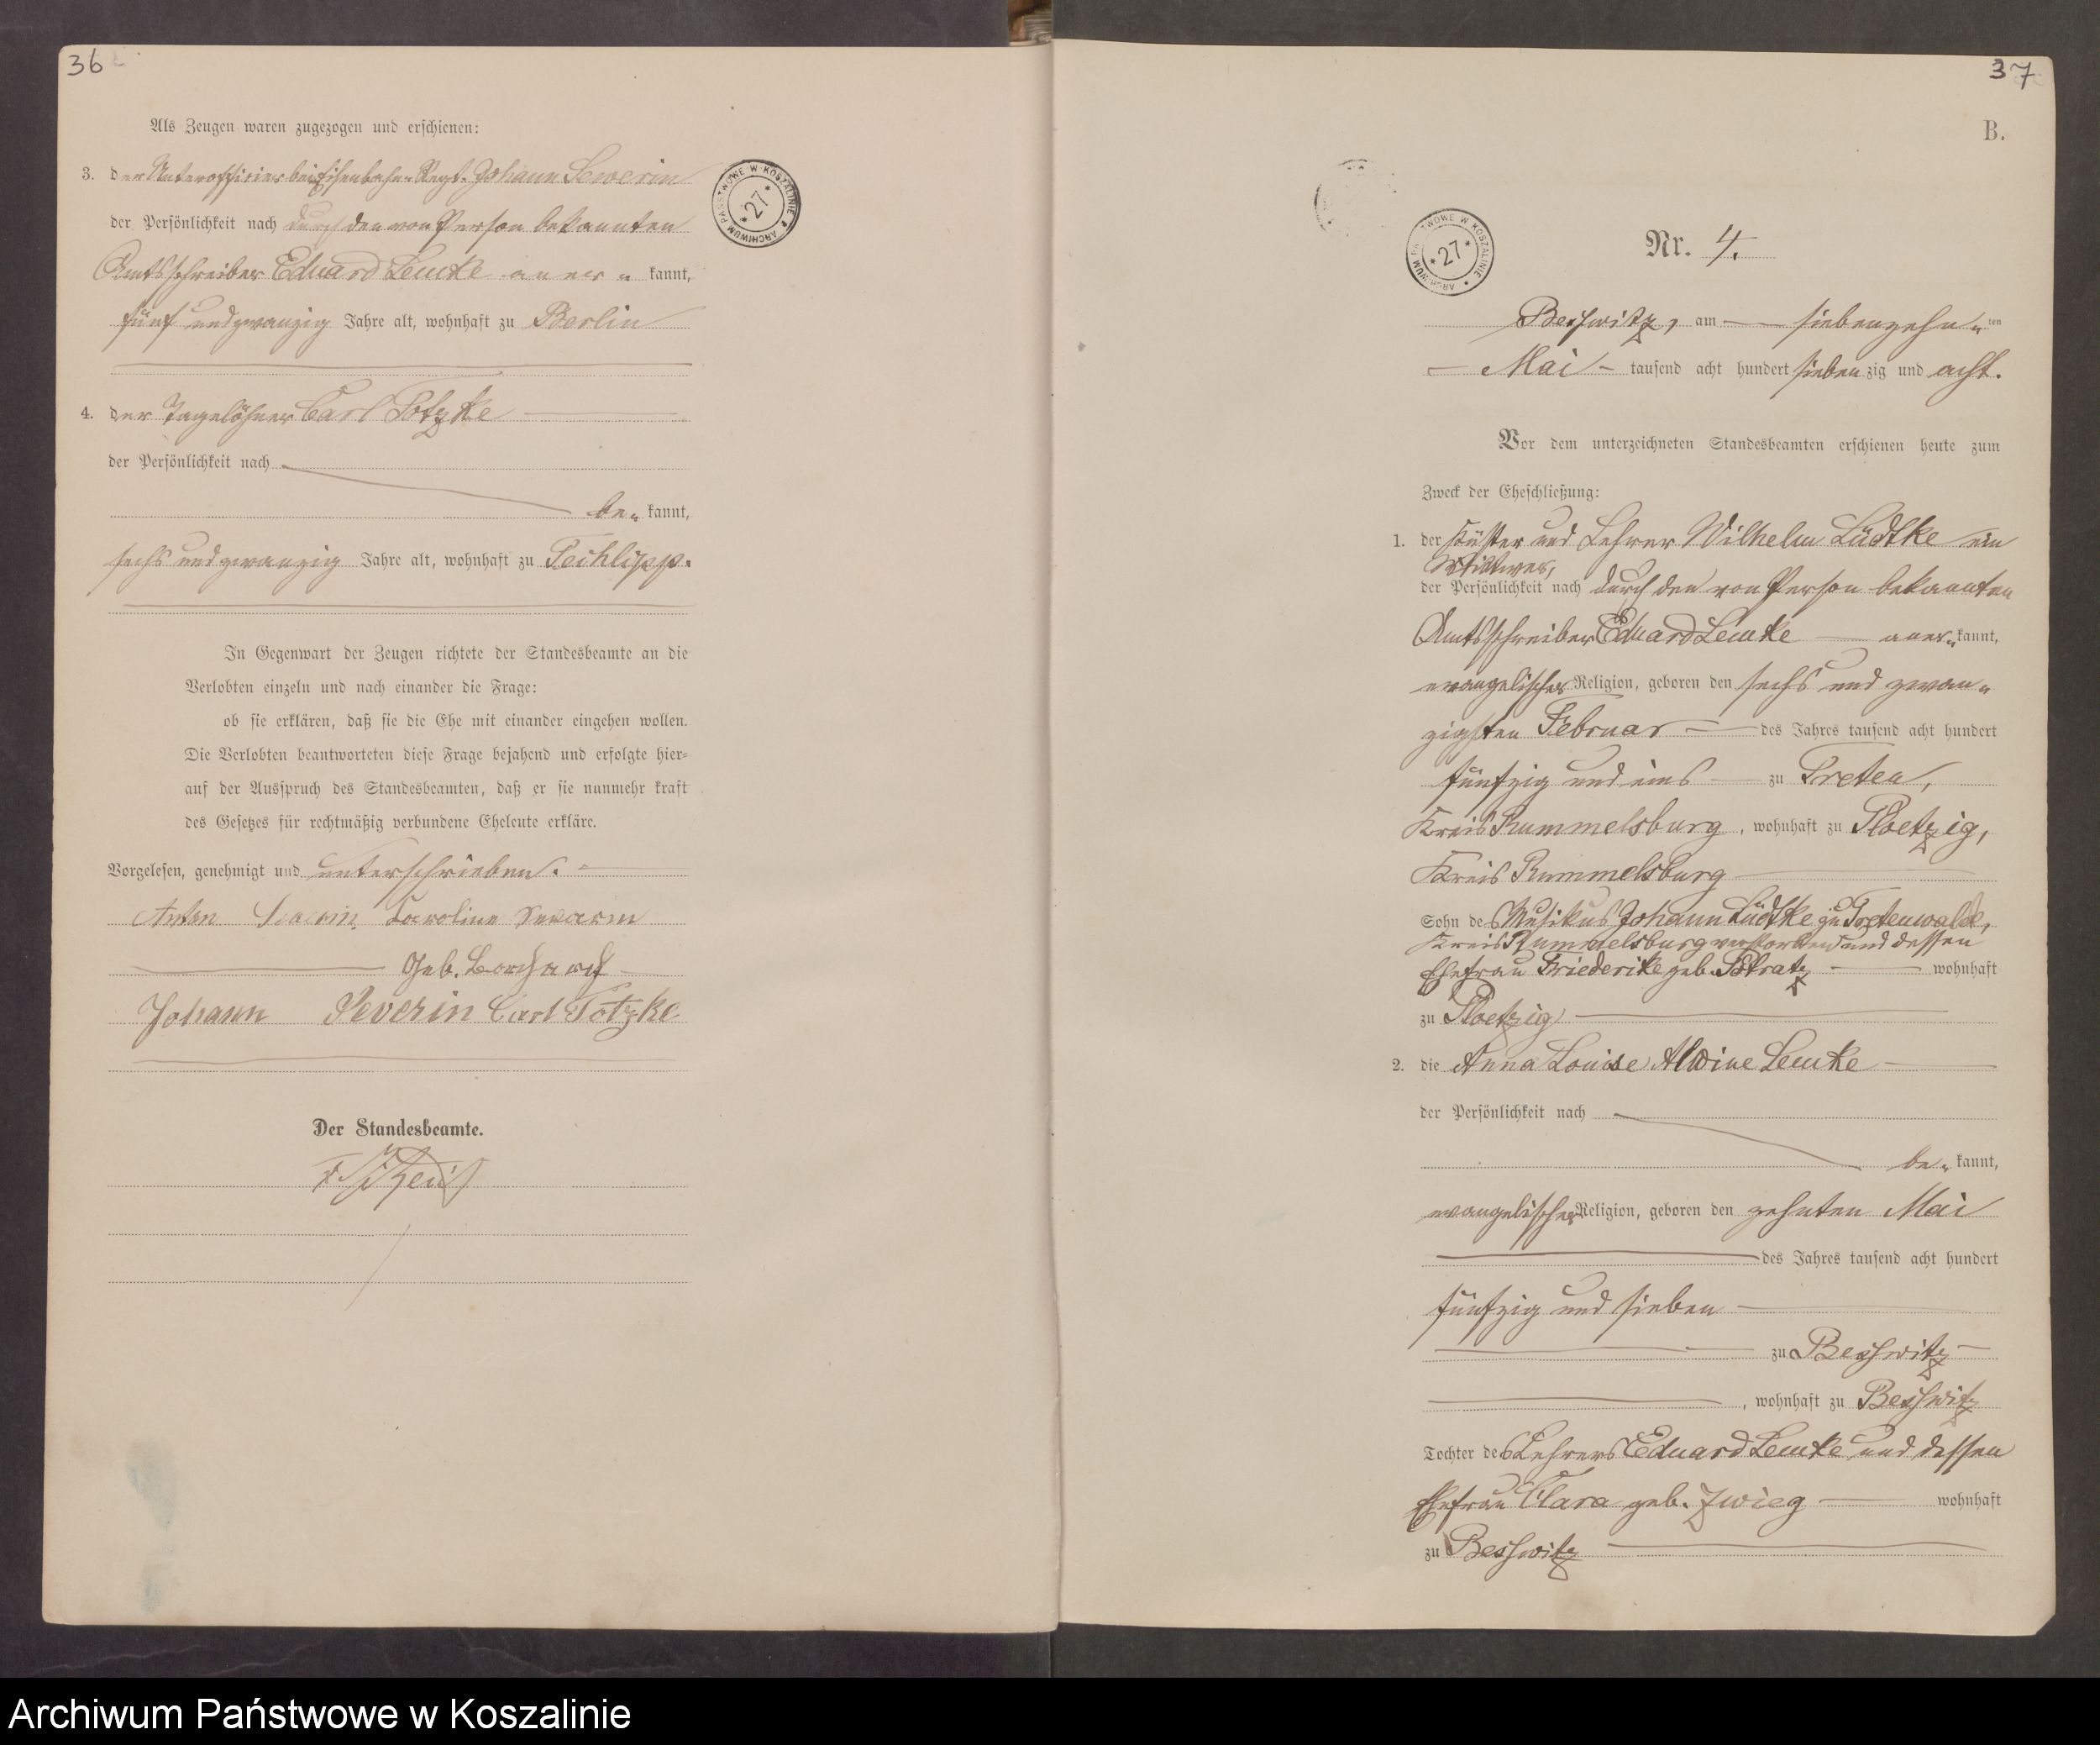 36
Als Zeugen waren zugezogen und erschienen:
3. der Unterofficier bei Eisenbahn-Regt. Johann Sewerin
der Persönlichkeit nach durch den von Person bekannten
Amtsschreiber Eduard Lemke aner- kannt,
fünf und zwanzig Jahre alt, wohnhaft zu Berlin
4. der Tagelöhner Carl Totzke
der Persönlichkeit nach
be- kannt,
sechs und zwanzig Jahre alt, wohnhaft zu Techlipp.
In Gegenwart der Zeugen richtete der Standesbeamte an die
Verlobten einzeln und nach einander die Frage:
ob sie erklären, daß sie die Ehe mit einander eingehen wollen.
Die Verlobten beantworteten diese Frage bejahend und erfolgte hier-
auf der Ausspruch des Standesbeamten, daß er sie nunmehr kraft
des Gesetzes für rechtmäßig verbundene Eheleute erkläre.
Vorgelesen, genehmigt und unterschrieben.
Anton Caroline
Geb.
Johann Severin Carl Totzke
Der Standesbeamte.
ARCHIWUM PAŃSTWOWE W KOSZALINIE
*27*
37
B.
ARCHIWUM PAŃSTWOWE W KOSZALINIE
*27*
Nr. 4.
Beßwitz, am siebenzehn- ten
Mai tausend acht hundert siebenzig und acht.
Vor dem unterzeichneten Standesbeamten erschienen heute zum
Zweck der Eheschließung:
1. der Küster und Lehrer Wilhelm Lüdtke ein
Wittwer,
der Persönlichkeit nach durch den von Person bekannten
Amtsschreiber Eduard Lemke aner- kannt,
evangelischer Religion, geboren den sechs und zwan-
zigsten Februar des Jahres tausend acht hundert
fünfzig und eins zu Treten,
Kreis Rummelsburg, wohnhaft zu Ploetzig,
Kreis Rummelsburg
Sohn des Musikus Johann Lüdtke zu Tretenwalde,
Kreis Rummelsburg verstorben und dessen
Ehefrau Friederike geb. wohnhaft
zu Ploetzig
2. die Anna Louise Alwine Lemke
der Persönlichkeit nach
be- kannt,
evangelischer Religion, geboren den zehnten Mai
des Jahres tausend acht hundert
fünfzig und sieben
zu Beßwitz
, wohnhaft zu Beßwitz
Tochter des Lehrers Eduard Lemke und dessen
Ehefrau Clara geb. Zwieg wohnhaft
zu Beßwitz
Archiwum Państwowe w Koszalinie